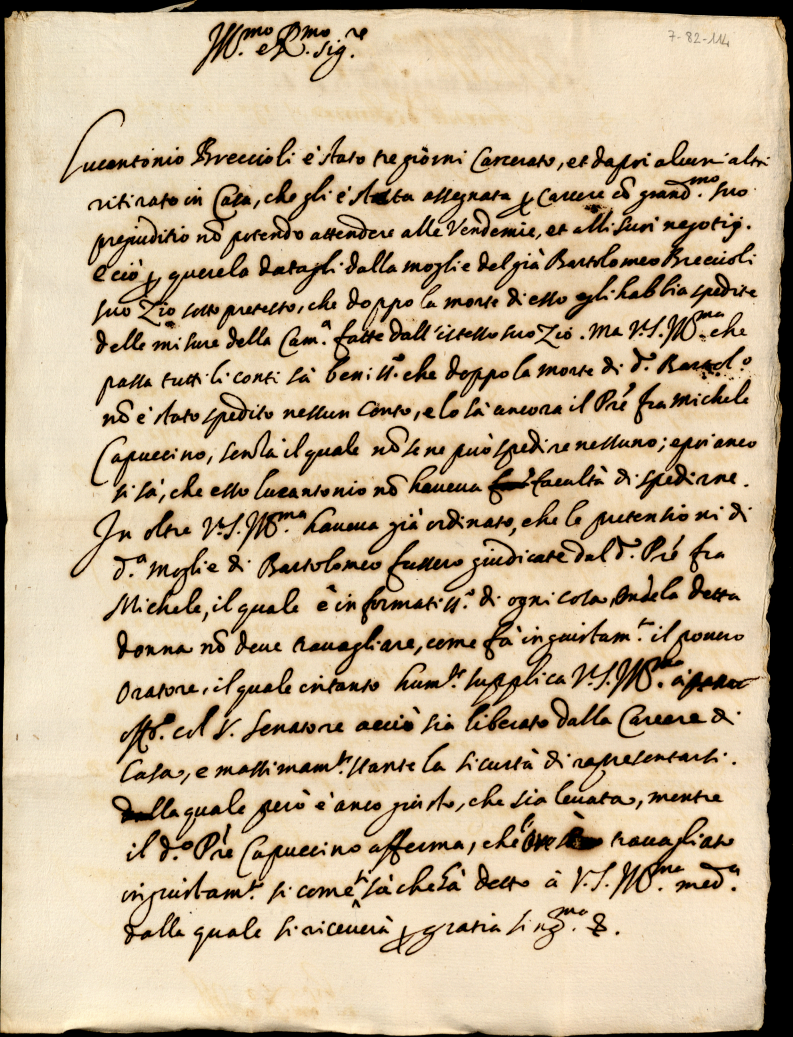 7-82-114
Ill.mo e R.mo sig.re
Lucantonio Breccioli è stato tre giorni Carcerato, et dapoi alcuni altri
ritirato in Casa, che gli è stata assegnata p Carcere cō grand.mo suo
prejuditio nō potendo attendere alle Vendemie, et alli suoi negotij.
E ciò p querela datagli dalla moglie del già Bartolomeo Breccioli
suo Zio sotto pretesto, che doppo la morte di esso egli habbia spedite
delle misure della Cam.a fatte dall'istesso suo Zio. Ma V.S. Ill.ma che
passa tutti li conti sà beniss.o che doppo la morte di d.o Bartol.o
nō è stato spedito nessun Conto, e lo sà ancora il Prē fra Michele
Capuccino, senza il quale nō se ne può spedire nessuno; e poi anco
si sà, che esso lucantonio nō haveva facultà di spedirne.
In oltre V.S. Ill.ma haveva già ordinato, che le pretensioni di
d.a moglie di Bartolomeo fussero giudicate dal d.o Prē fra
Michele, il quale è informatiss.o di ogni cosa, Onde la detta
donna nō deve travagliare, come fà ingiustam.te il povero
Oratore, il quale intanto hum.te supplica V.S. Ill.ma à
off.o col S. Senatore acciò sia liberato dalla Carcere di
Casa, e massimam.te stante la sicurtà di rapresentarsi.
dalla quale però è anco giusto, che sia levata, mentre
il d.o Prē Capuccino afferma, che travagliato
ingiustam.te si come sà che hà detto à V.S. Ill.ma med.a
dalla quale si riceverà p gratia sing.ma &.